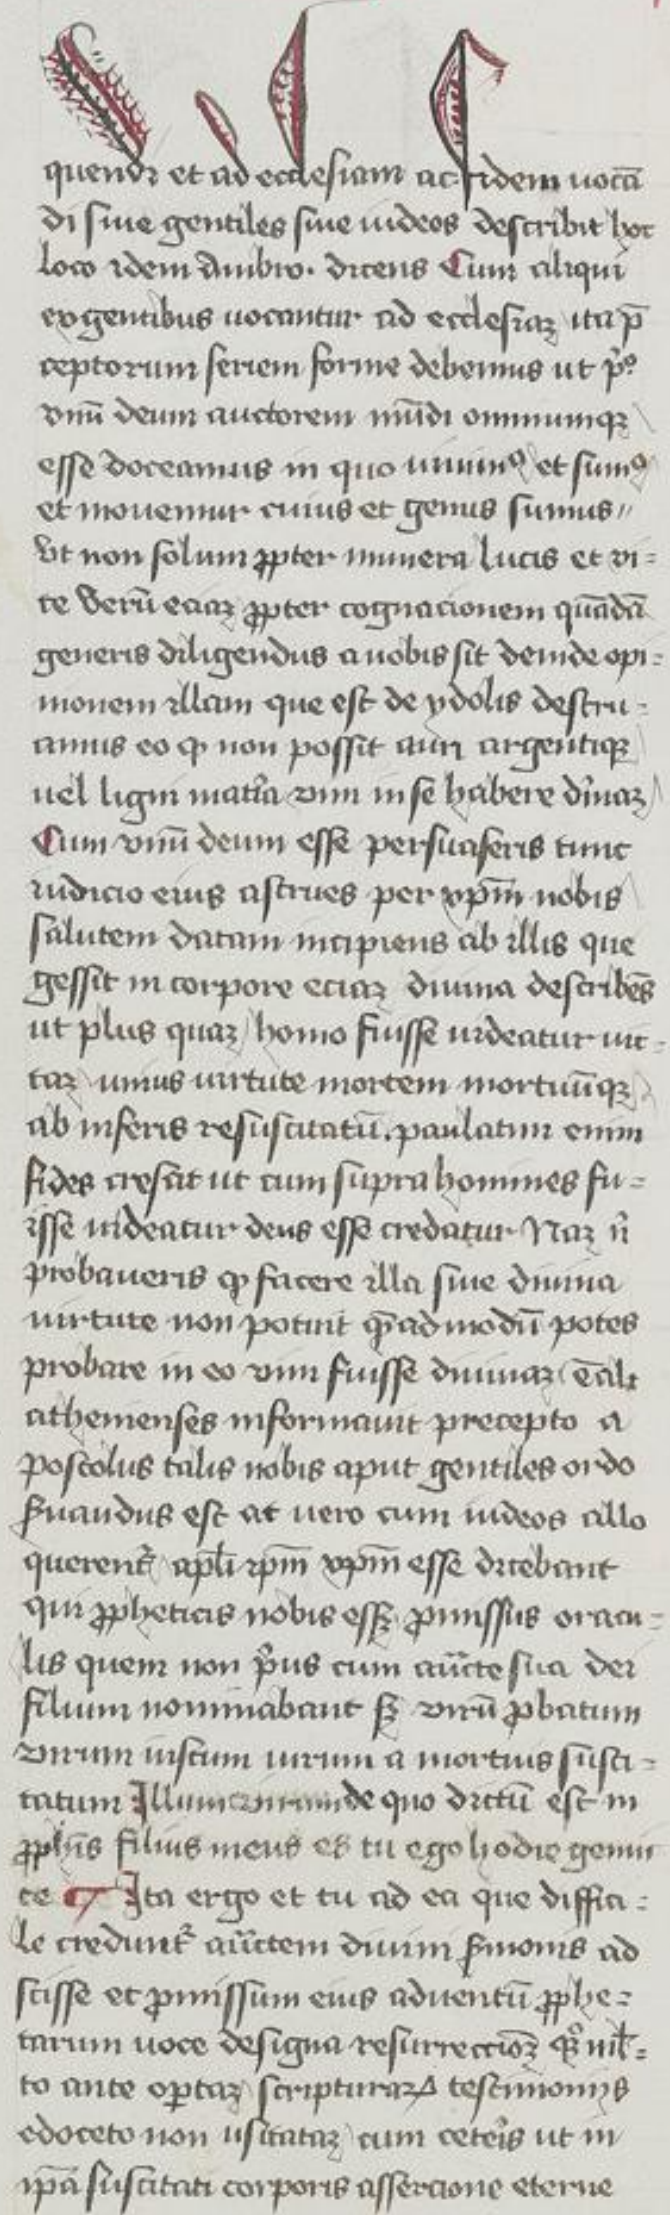 quendi et ad ecclesiam ac fidem uocā
di siue gentiles siue iudeos describit hoc
loco idem Ambro. dicens Cum aliqui
ex gentibus uocantur ad ecclesiaꝫ ita p̄
ceptorum seriem forme debemus ut p͛º
vnū deum auctorem mūdi omniumqꝫ
esse doceamus in quo uiuimꝰ et sumꝰ
et mouemur cuius et genus sumus //
Vt non solum ꝓpter munera lucis et vi=
te Verū eciaꝫ ꝓpter cognacionem quādā
generis diligendus a nobis sit deinde opi=
nionem illam que est de ydolis destru=
amus eo ꝙ non possit auri argentiqꝫ
uel ligni mat͛ia vim in se habere diuiaꝫ
Cum vnū deum esse persuaseris tunc
iudicio eius astrues per xp̄m nobis
salutem datam incipiens ab illis que
gessit in corpore eciaꝫ diuina describēs
ut plus quaꝫ homo fuisse uideatur uic=
taꝫ unius uirtute mortem mortuūqꝫ
ab inferis resuscitatū. paulatim enim
fides crescit ut cum supra homines fu=
isse uideatur deus esse credatur Naꝫ n͛
probaueris ꝙ facere illa siue diuina
uirtute non potuit q̄admodū potes
probare in eo vim fuisse diuinaꝫ
athenienses informauit precepto a
postolus talis nobis aput gentiles ordo
ẜuandus est at uero cum iudeos allo
querent͛ apl̄i ip̄m xp̄m esse dicebant
qui ꝓpheticis nobis essꝫ ꝓmissus oracu=
lis quem non p͛us cum auc̄te sua dei
filium nominabant sꝫ virū ꝓbatum
virum iustum uirum a mortuis susci=
tatum Illum virum de quo dictū est in
ꝓphīs filius meus es tu ego hodie genui
te ¶ Ita ergo et tu ad ea que diffici=
le credunt͛ auc̄tem diuini ẜmonis ad
scisse et ꝓmissum eius aduentū ꝓphe=
tarum uoce designa resurrecciōꝫ
to ante optaꝫ scripturaꝝ testimonijs
edoceto non usitataꝫ cum cete͛is ut in
ip̄a suscitati corporis assercione eterne